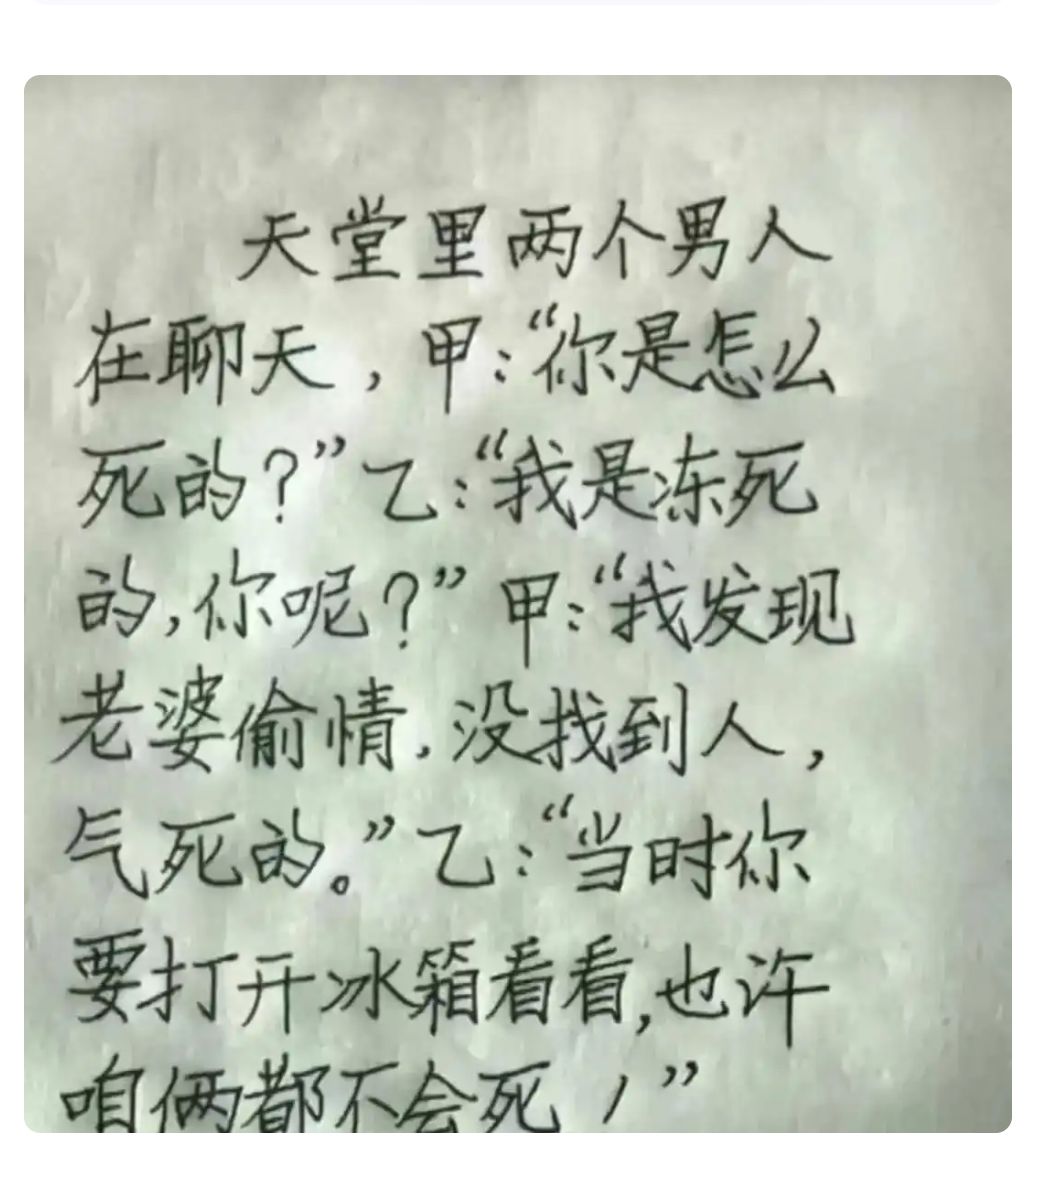 天堂里两个男人
在聊天，甲：“你是怎么
死的？”乙：“我是冻死
的，你呢？”甲：“我发现
老婆偷情，没找到人，
气死的。”乙：“当时你
要打开冰箱看看，也许
咱俩都不会死！”